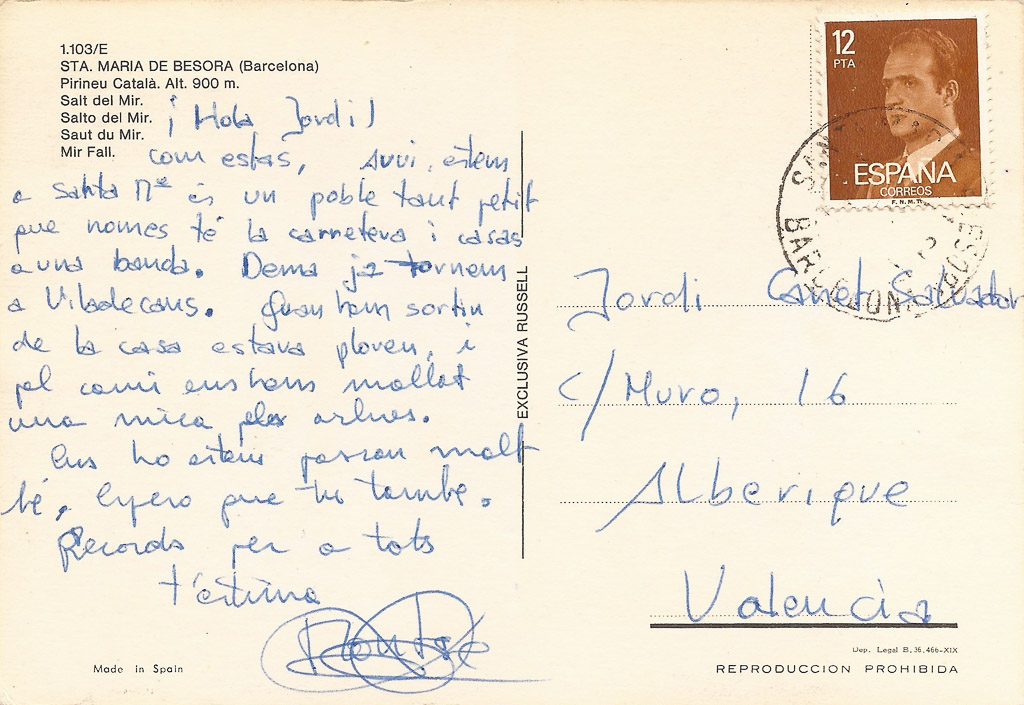 1.103/E
STA. MARIA DE BESORA (Barcelona)
Pirineu Català. Alt. 900 m.
Salt del Mir.
Salto del Mir.
Saut du Mir.
Mir Fall.
¡Hola Jordi!
com estas, avui, estem
a Santa Mª és un poble tant petit
que nomes té la carretera i casas
a una banda. Dema ja tornem
a Viladecans. Quan hem sortin
de la casa estava ploven, i
pel cami ens hems mollat
una mica
Ens ho estem passan molt
bé, Espero que tu tambe.
Records per a tots
t'estima
Made in Spain
EXCLUSIVA RUSSELL
12
PTA
ESPAÑA
CORREOS
F.N.M.T.
BARCELONA
Jordi Canet Salvador
C/Muro, 16
Alberique
Valencia
Dep. Legal B. 36.466-XIX
REPRODUCCION PROHIBIDA